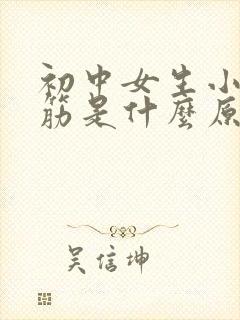 初中女生小
筋是什麼原
吴信坤